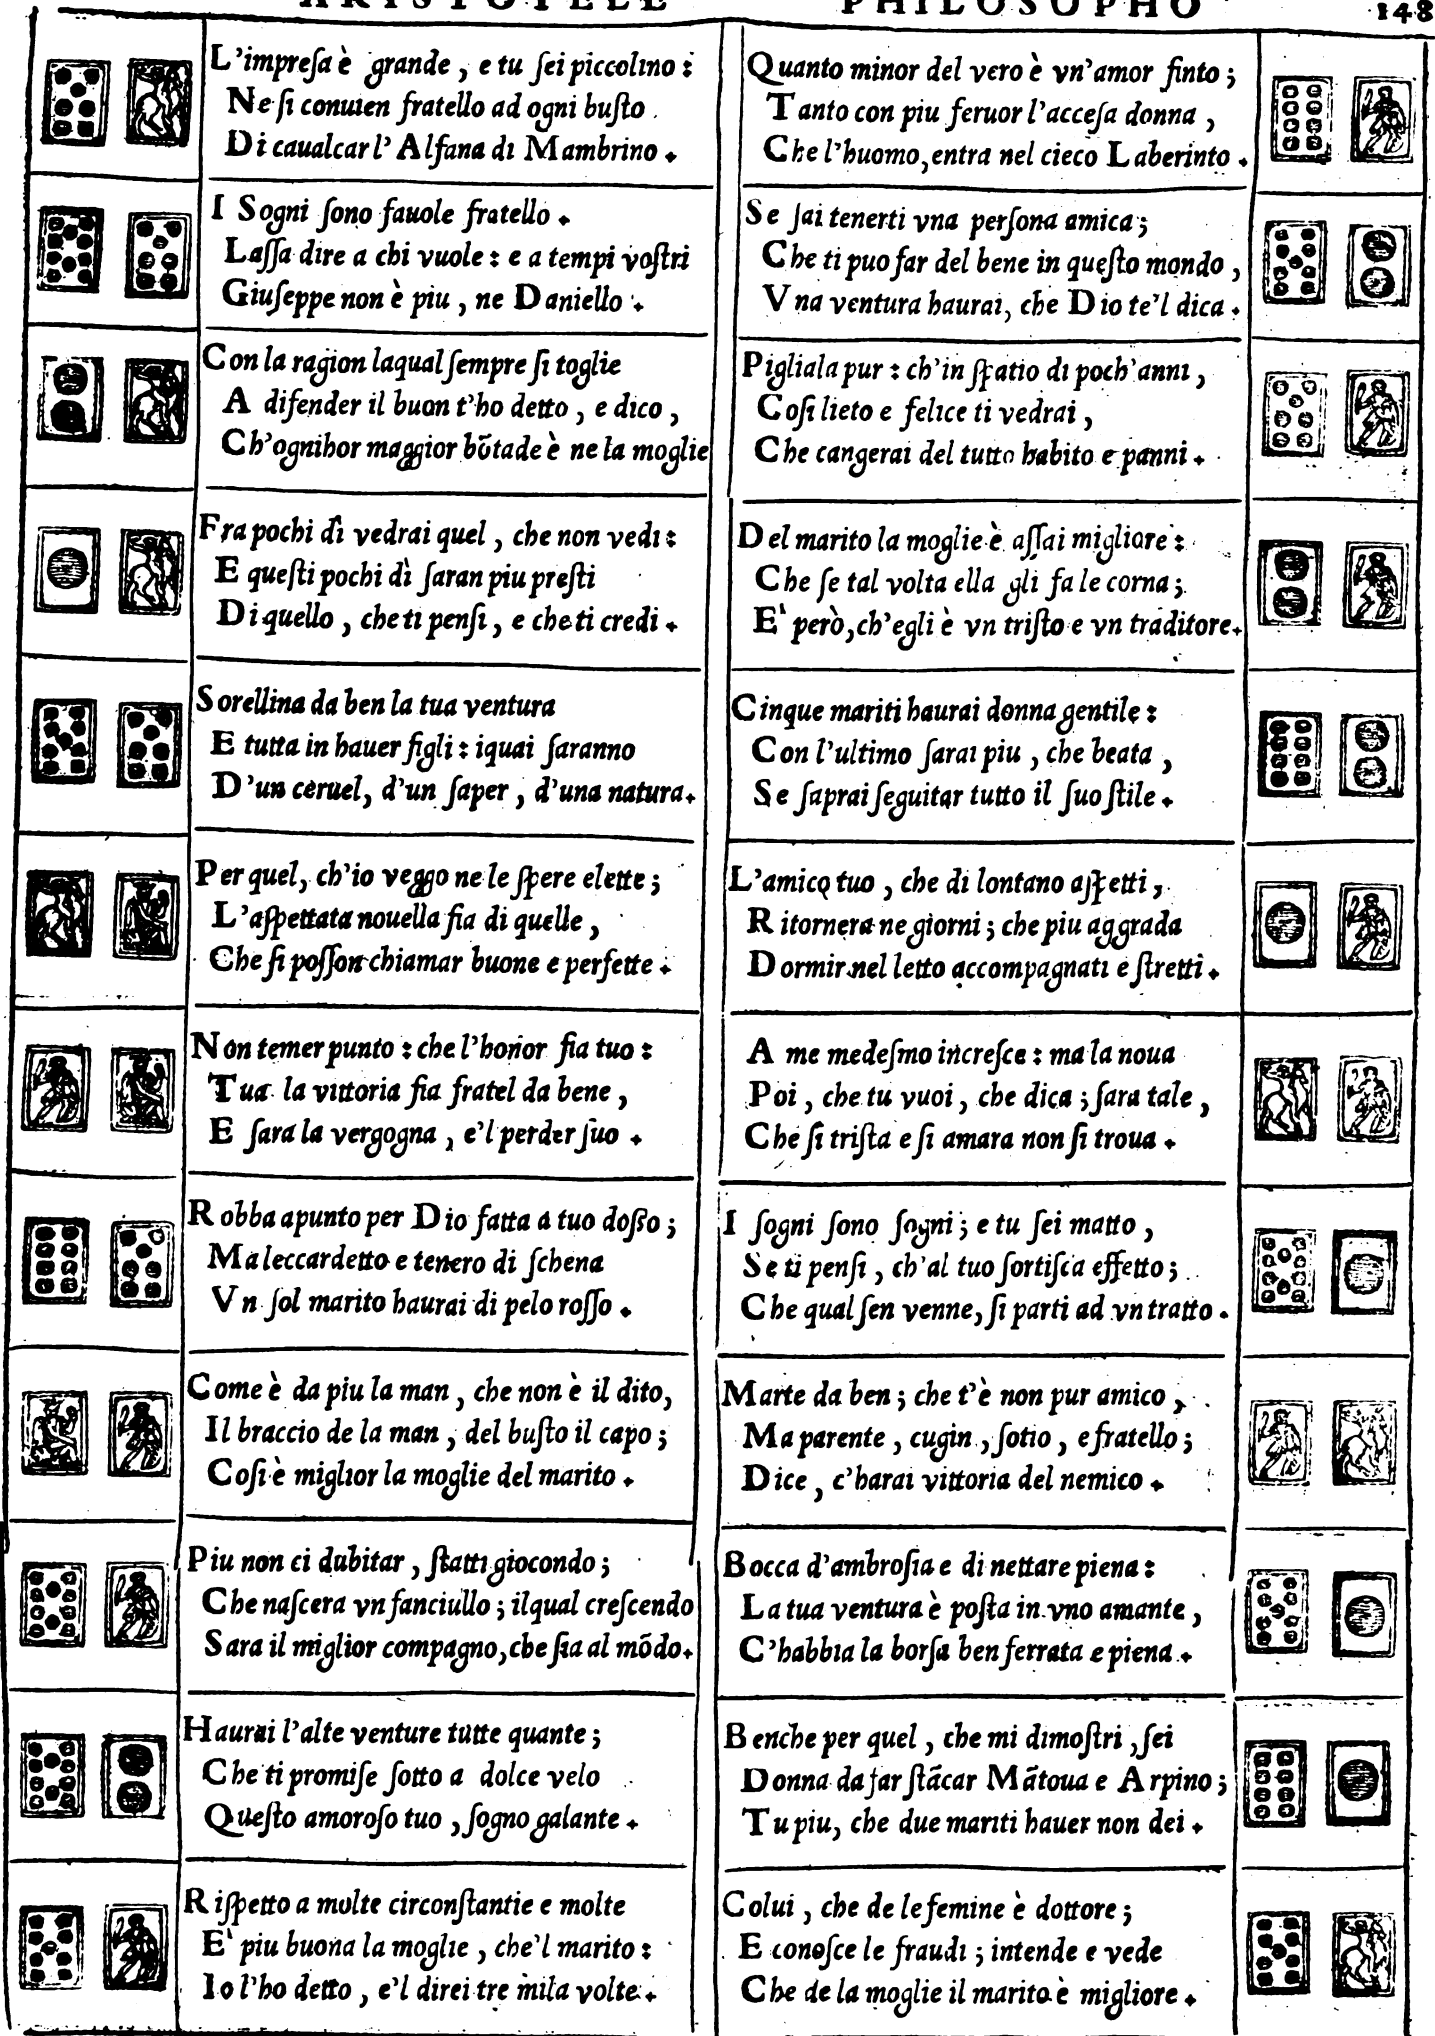 ARISTOTELE PHILOSOPHO 148
L'impreſa è grande, e tu ſei piccolino:
Ne ſi conuien fratello ad ogni buſto.
Di caualcar l'Alfana di Mambrino.
I Sogni ſono fauole fratello.
Laſſa dire a chi vuole: e a tempi voſtri
Giuſeppe non è piu, ne Daniello.
Con la ragion laqual ſempre ſi toglie
A difender il buon t'ho detto, e dico,
Ch'ognihor maggior bõtade è ne la moglie
Fra pochi dì vedrai quel, che non vedi:
E queſti pochi dì ſaran piu preſti
Di quello, che ti penſi, e che ti credi.
Sorellina da ben la tua ventura
E tutta in hauer figli: iquai ſaranno
D'un ceruel, d'un ſaper, d'una natura.
Per quel, ch'io veggo ne le ſpere elette;
L'aſpettata nouella fia di quelle,
Che ſi poſſon chiamar buone e perfette.
Non temer punto: che l'honor fia tuo:
Tua la vittoria fia fratel da bene,
E ſara la vergogna, e'l perder ſuo.
Robba apunto per Dio fatta a tuo doſſo;
Ma leccardetto e tenero di ſchena
Vn ſol marito haurai di pelo roſſo.
Come è da piu la man, che non è il dito,
Il braccio de la man, del buſto il capo;
Coſi è miglior la moglie del marito.
Piu non ci dubitar, ſtatti giocondo;
Che naſcera vn fanciullo; ilqual creſcendo
Sara il miglior compagno, che ſia al mõdo.
Haurai l'alte venture tutte quante;
Che ti promiſe ſotto a dolce velo
Queſto amoroſo tuo, ſogno galante.
Riſpetto a molte circonſtantie e molte
E' piu buona la moglie, che'l marito:
Io l'ho detto, e'l direi tre mila volte.
Quanto minor del vero è vn'amor finto;
Tanto con piu feruor l'acceſa donna,
Che l'huomo, entra nel cieco Laberinto.
Se ſai tenerti vna perſona amica;
Che ti puo far del bene in queſto mondo,
Vna ventura haurai, che Dio te'l dica.
Pigliala pur: ch'in ſpatio di poch'anni,
Coſi lieto e felice ti vedrai,
Che cangerai del tutto habito e panni.
Del marito la moglie è aſſai migliore:
Che ſe tal volta ella gli fa le corna;
E' però, ch'egli è vn triſto e vn traditore.
Cinque mariti haurai donna gentile:
Con l'ultimo ſarai piu, che beata,
Se ſaprai ſeguitar tutto il ſuo ſtile.
L'amico tuo, che di lontano aſpetti,
Ritornera ne giorni; che piu aggrada
Dormir nel letto accompagnati e ſtretti.
A me medeſmo increſce: ma la noua
Poi, che tu vuoi, che dica; ſara tale,
Che ſi triſta e ſi amara non ſi troua.
I ſogni ſono ſogni; e tu ſei matto,
Se ti penſi, ch'al tuo ſortiſca effetto;
Che qual ſen venne, ſi parti ad vn tratto.
Marte da ben; che t'è non pur amico,
Ma parente, cugin, ſotio, e fratello;
Dice, c'harai vittoria del nemico.
Bocca d'ambroſia e di nettare piena:
La tua ventura è poſta in vno amante,
C'habbia la borſa ben ferrata e piena.
Benche per quel, che mi dimoſtri, ſei
Donna da far ſtãcar Mãtoua e Arpino;
Tu piu, che due mariti hauer non dei.
Colui, che de le femine è dottore;
E conoſce le fraudi; intende e vede
Che de la moglie il marito è migliore.